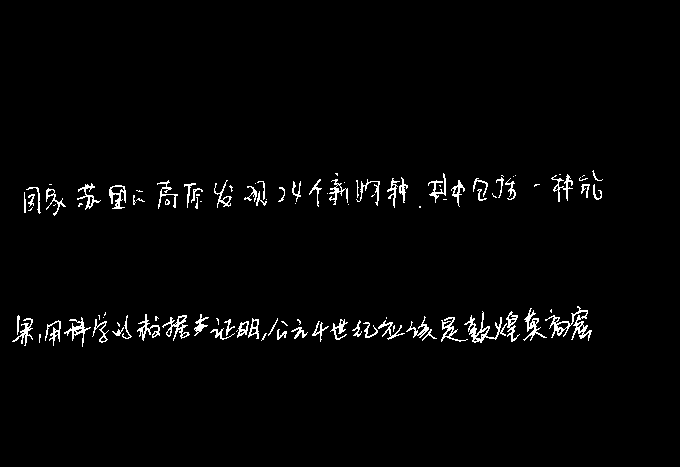 国家苏里亡高原发现24个新物种.其中包括一种能
果,用科学的数据来证明,公元4世纪应该是敦煌莫高窟